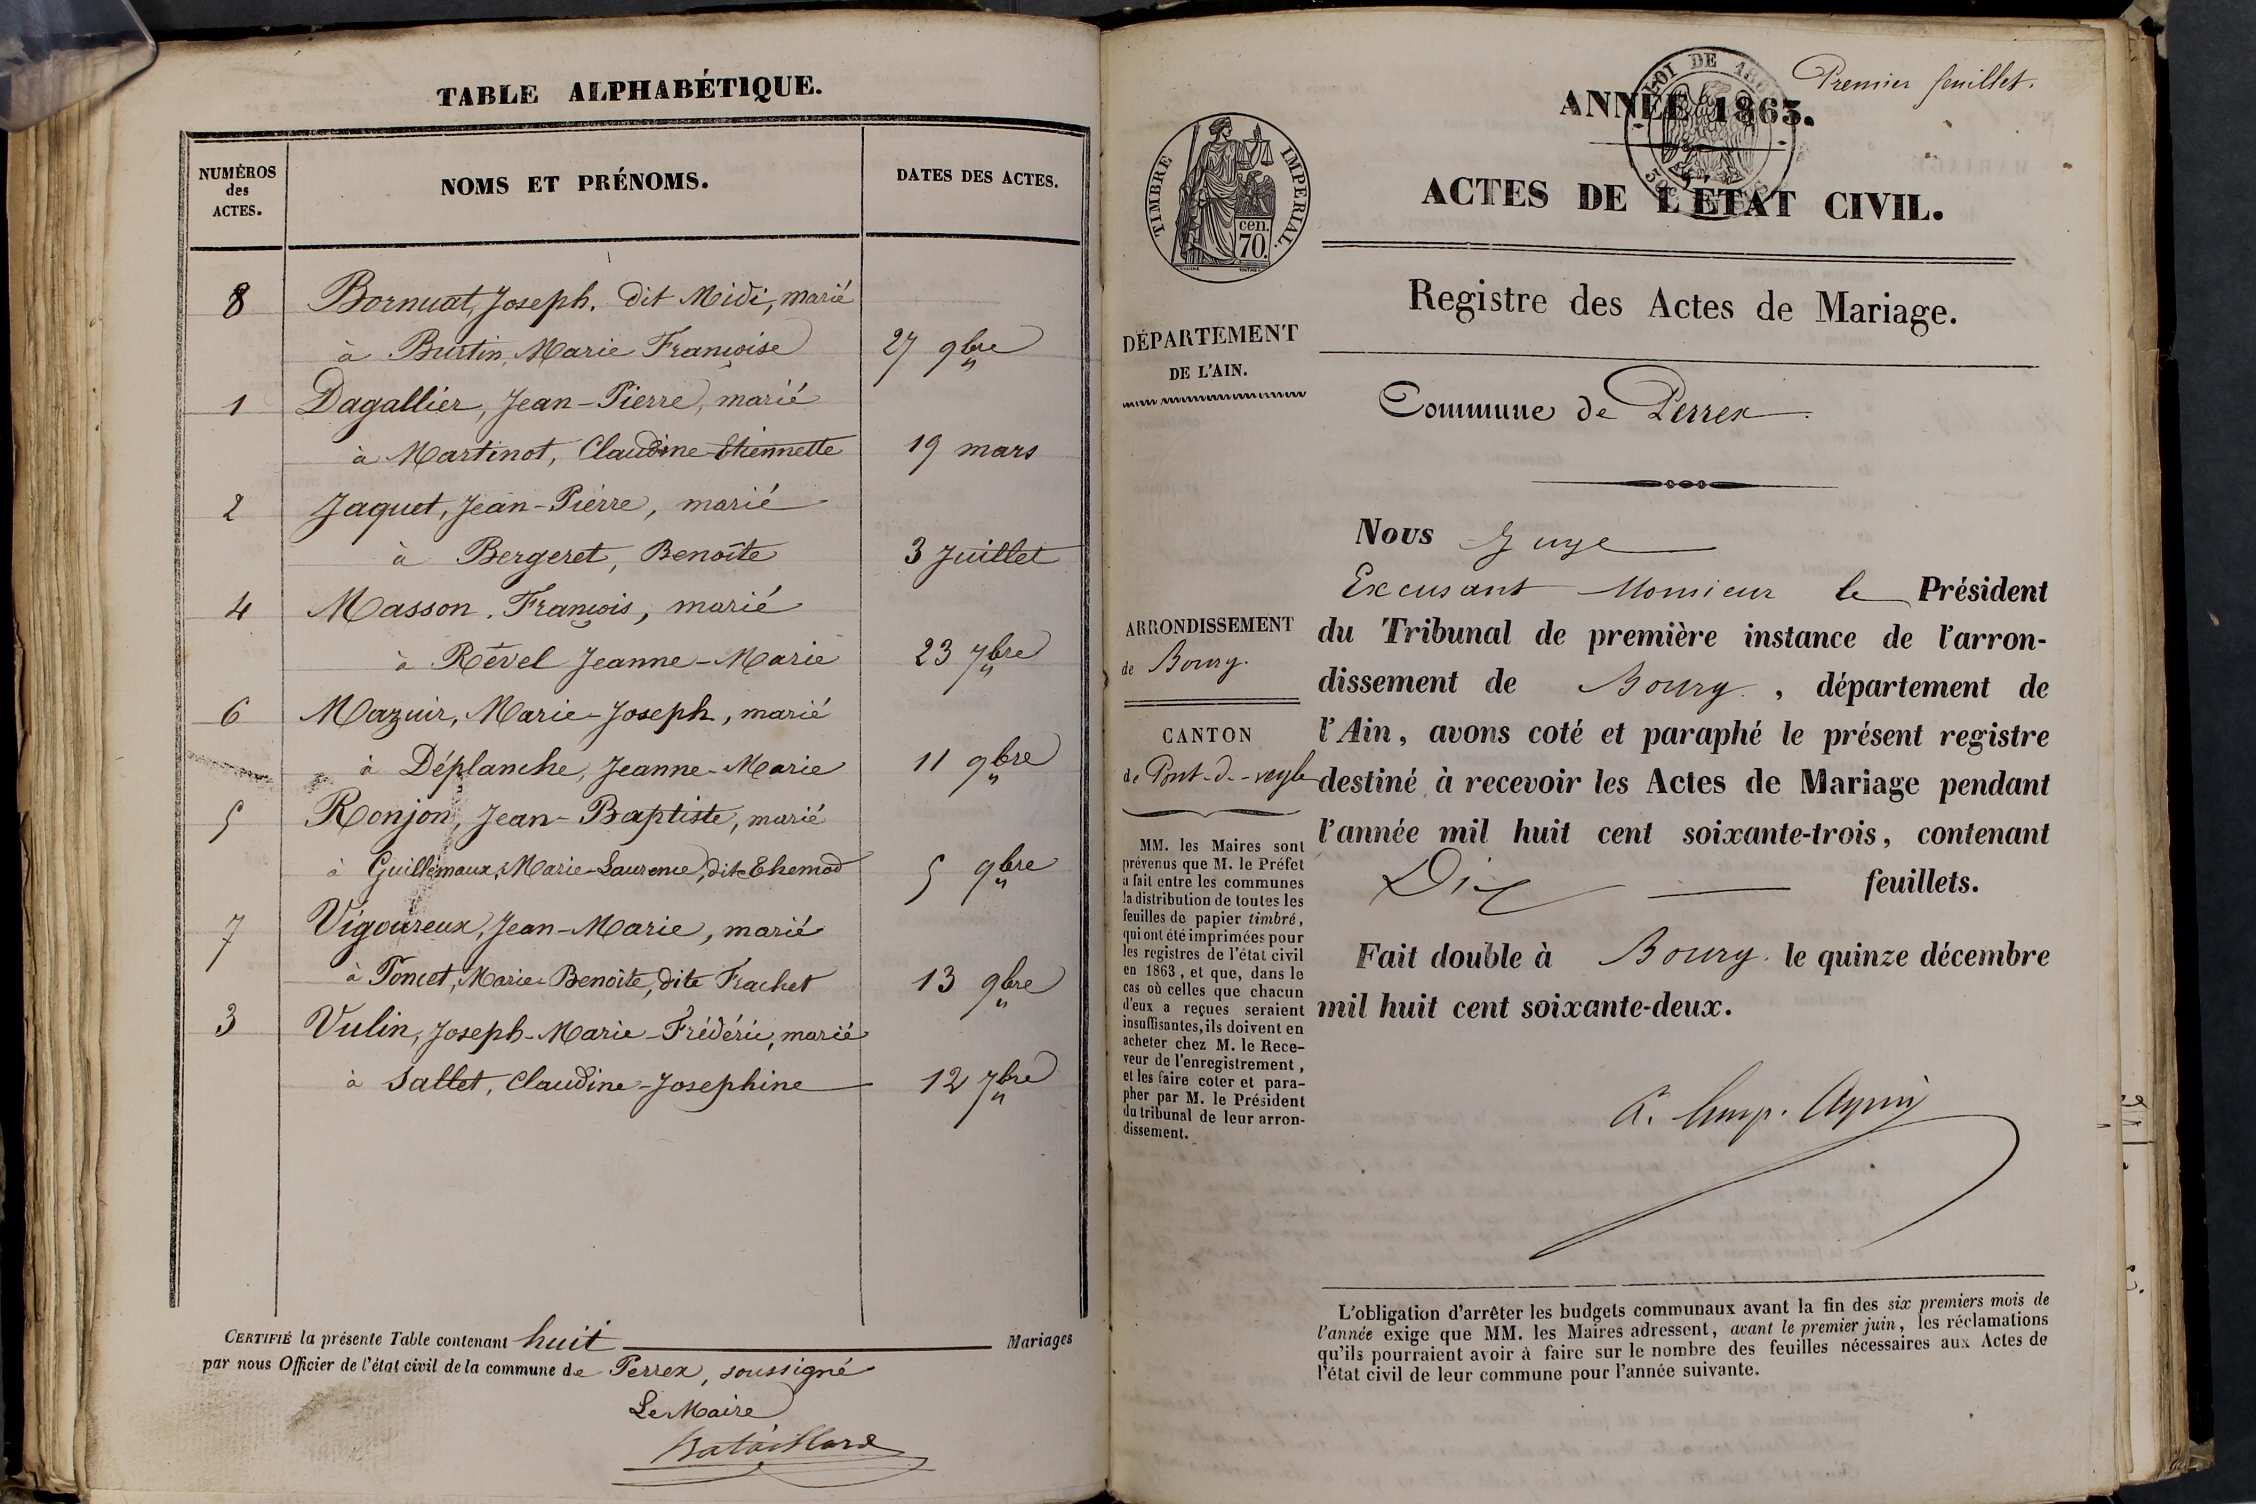 TABLE ALPHABÉTIQUE.
NUMÉROS des ACTES.
NOMS ET PRÉNOMS.
DATES DES ACTES.
8 Bornuat, Joseph. dit Midi, marié
à Burtin, Marie Françoise 27 9bre
1 Dagallier, Jean-Pierre, marié
à Martinot, Claudine Etiennette 19 mars
2 Jaquet, Jean-Pierre, marié
à Bergeret, Benoîte 3 Juillet
4 Masson, François, marié
à Rével Jeanne-Marie 23 7bre
6 Mazuir, Marie-Joseph, marié
à Déplanche, Jeanne-Marie 11 9bre
5 Ronjon, Jean-Baptiste, marié
à Guillemaux, Marie-Laurence, dite Chemod 5 9bre
7 Vigoureux, Jean-Marie, marié
à Poncet, Marie-Benoîte, dite Frachet 13 9bre
3 Vulin, Joseph-Marie-Frédéric, marié
à Sallet, Claudine-Josephine 12 7bre
CERTIFIÉ la présente Table contenant huit Mariages
par nous Officier de l'état civil de la commune de Perrex, soussigné
Le Maire
Bataillard
Premier feuillet.
LOI DE
ANNÉE 1863.
TIMBRE IMPÉRIAL.
cen.
70.
ACTES DE L'ÉTAT CIVIL.
Registre des Actes de Mariage.
DÉPARTEMENT
DE L'AIN.
Commune de Perrex
Nous Juge
Excusant Monsieur le Président
du Tribunal de première instance de l'arron-
dissement de Bourg, département de
l'Ain, avons coté et paraphé le présent registre
destiné à recevoir les Actes de Mariage pendant
l'année mil huit cent soixante-trois, contenant
Dix feuillets.
Fait double à Bourg. le quinze décembre
mil huit cent soixante-deux.
ARRONDISSEMENT
de Bourg.
CANTON
de Pont-d-veyle
MM. les Maires sont
prévenus que M. le Préfet
a fait entre les communes
la distribution de toutes les
feuilles de papier timbré,
qui ont été imprimées pour
les registres de l'état civil
en 1863, et que, dans le
cas où celles que chacun
d'eux a reçues seraient
insuffisantes, ils doivent en
acheter chez M. le Rece-
veur de l'enregistrement,
et les faire coter et para-
pher par M. le Président
du tribunal de leur arron-
dissement.
L'obligation d'arrêter les budgets communaux avant la fin des six premiers mois de
l'année exige que MM. les Maires adressent, avant le premier juin, les réclamations
qu'ils pourraient avoir à faire sur le nombre des feuilles nécessaires aux Actes de
l'état civil de leur commune pour l'année suivante.